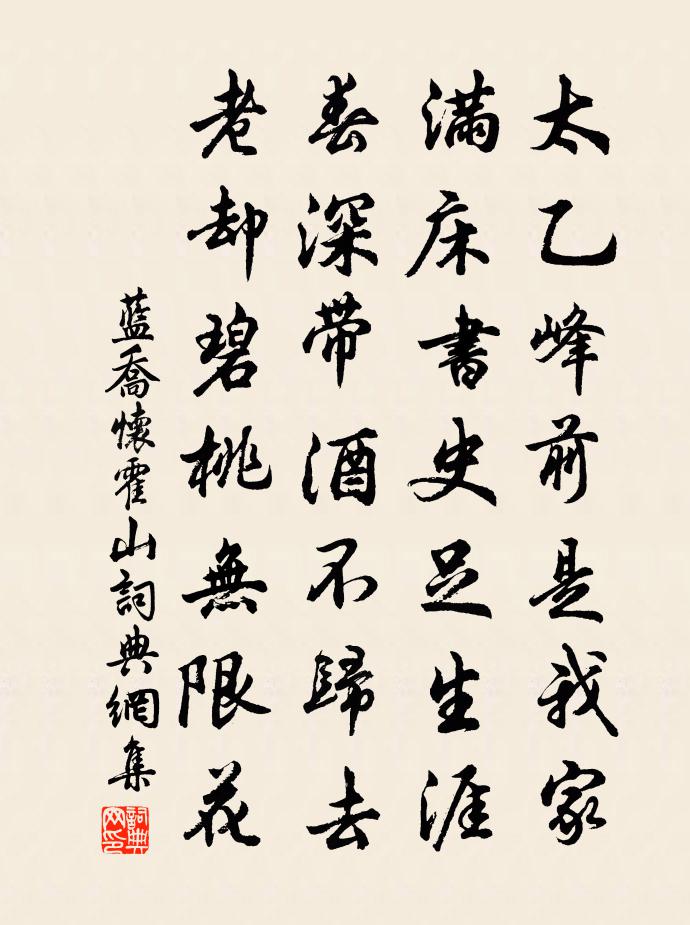 太乙峰前是我家
滿床書史足生涯
春深帶酒不歸去
老却碧桃無限花
藍喬懷霍山詞典網集
詞典网印